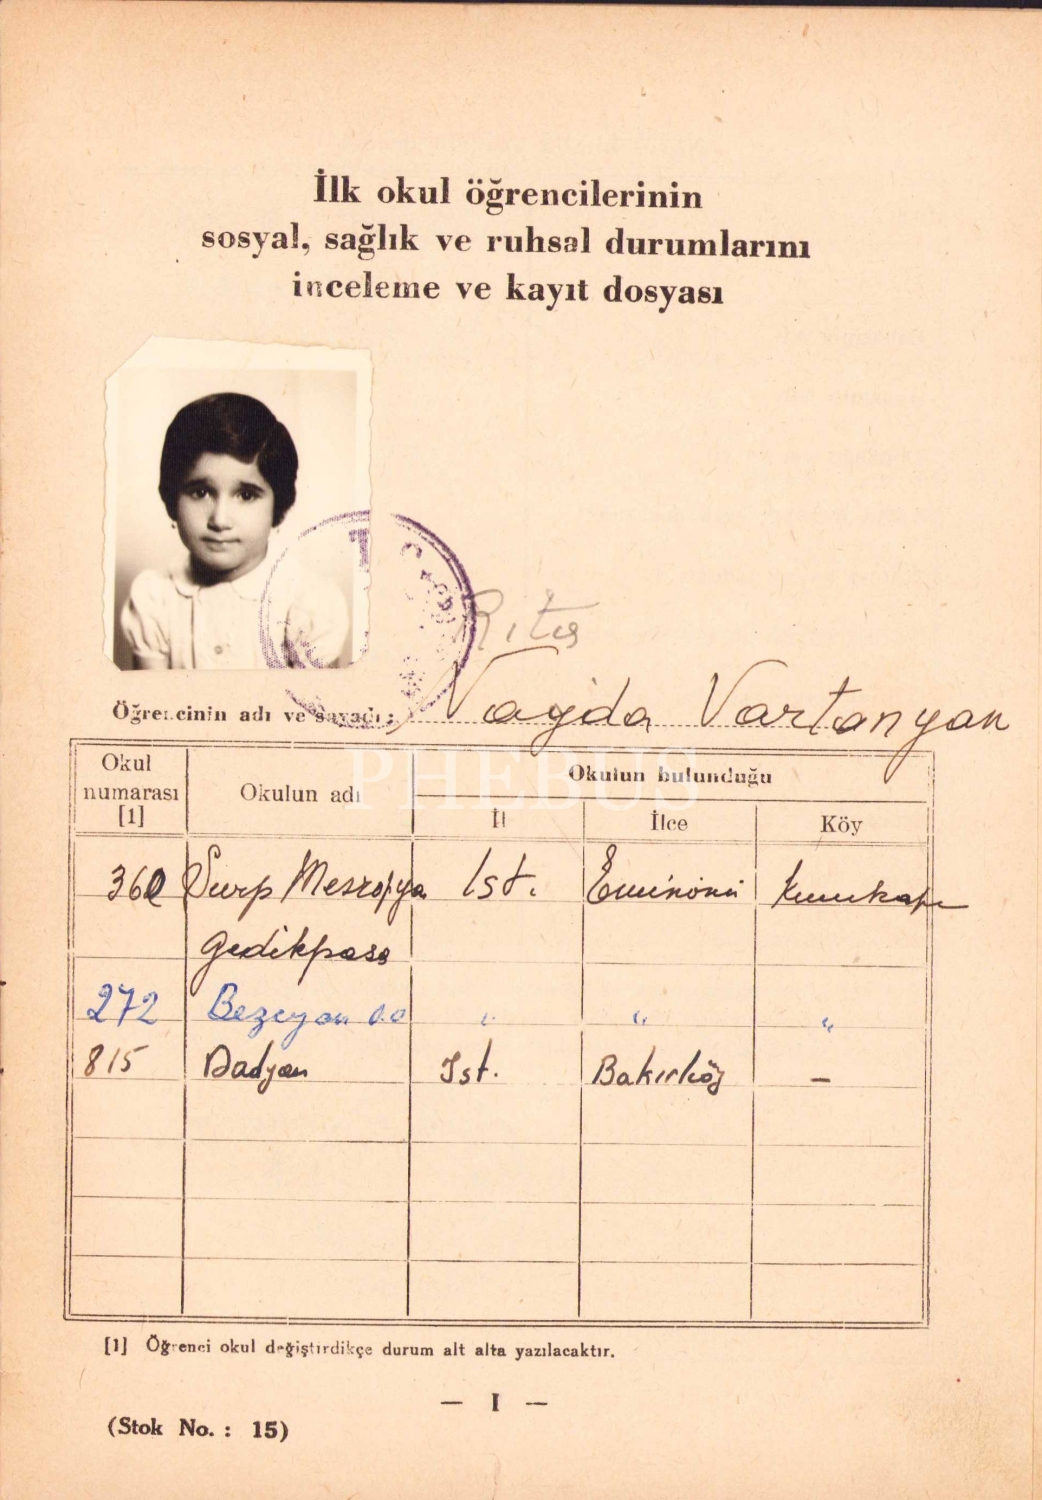 İlk okul öğrencilerinin
sosyal, sağlık ve ruhsal durumlarını
inceleme ve kayıt dosyası
Rita
Öğrencinin adı ve soyadı : Vağda Vartanyan
PHEBUS
Okul numarası [1] Okulun adı Okulun bulunduğu
İl İlce Köy
360 Surp Mesropya İst. Eminönü Kumkapı
Gedikpaşa
272 Bezeyan O.O " " "
815 Dadyan İst. Bakırköy –
[1] Öğrenci okul değiştirdikçe durum alt alta yazılacaktır.
— I —
(Stok No. : 15)